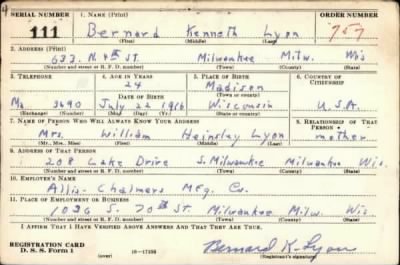 SERIAL NUMBER 1. NAME (Print) ORDER NUMBER
111 Bernard Kenneth Lyon 757
(First) (Middle) (Last)
2. ADDRESS (Print)
633 N 4th ST. Milwaukee Milw. Wis
(Number and street or R. F. D. number) (Town) (County) (State)
3. TELEPHONE 4. AGE IN YEARS 5. PLACE OF BIRTH 6. COUNTRY OF CITIZENSHIP
24 Madison
DATE OF BIRTH (Town or county)
Ma 3690 July 22 1916 Wisconsin U.S.A.
(Exchange) (Number) (Mo.) (Day) (Yr.) (State or country)
7. NAME OF PERSON WHO WILL ALWAYS KNOW YOUR ADDRESS 8. RELATIONSHIP OF THAT PERSON
Mrs. William Lyon mother
(Mr., Mrs., Miss) (First) (Middle) (Last)
9. ADDRESS OF THAT PERSON
208 Lake Drive S. Milwaukee Milwaukee Wis.
(Number and street or R. F. D. number) (Town) (County) (State)
10. EMPLOYER'S NAME
Allis-Chalmers Mfg. Co.
11. PLACE OF EMPLOYMENT OR BUSINESS
1026 S. 70th ST. Milwaukee Milw. Wis.
(Number and street or R. F. D. number) (Town) (County) (State)
I AFFIRM THAT I HAVE VERIFIED ABOVE ANSWERS AND THAT THEY ARE TRUE.
REGISTRATION CARD
D. S. S. Form 1 (over) Bernard K. Lyon
(Registrant's signature)